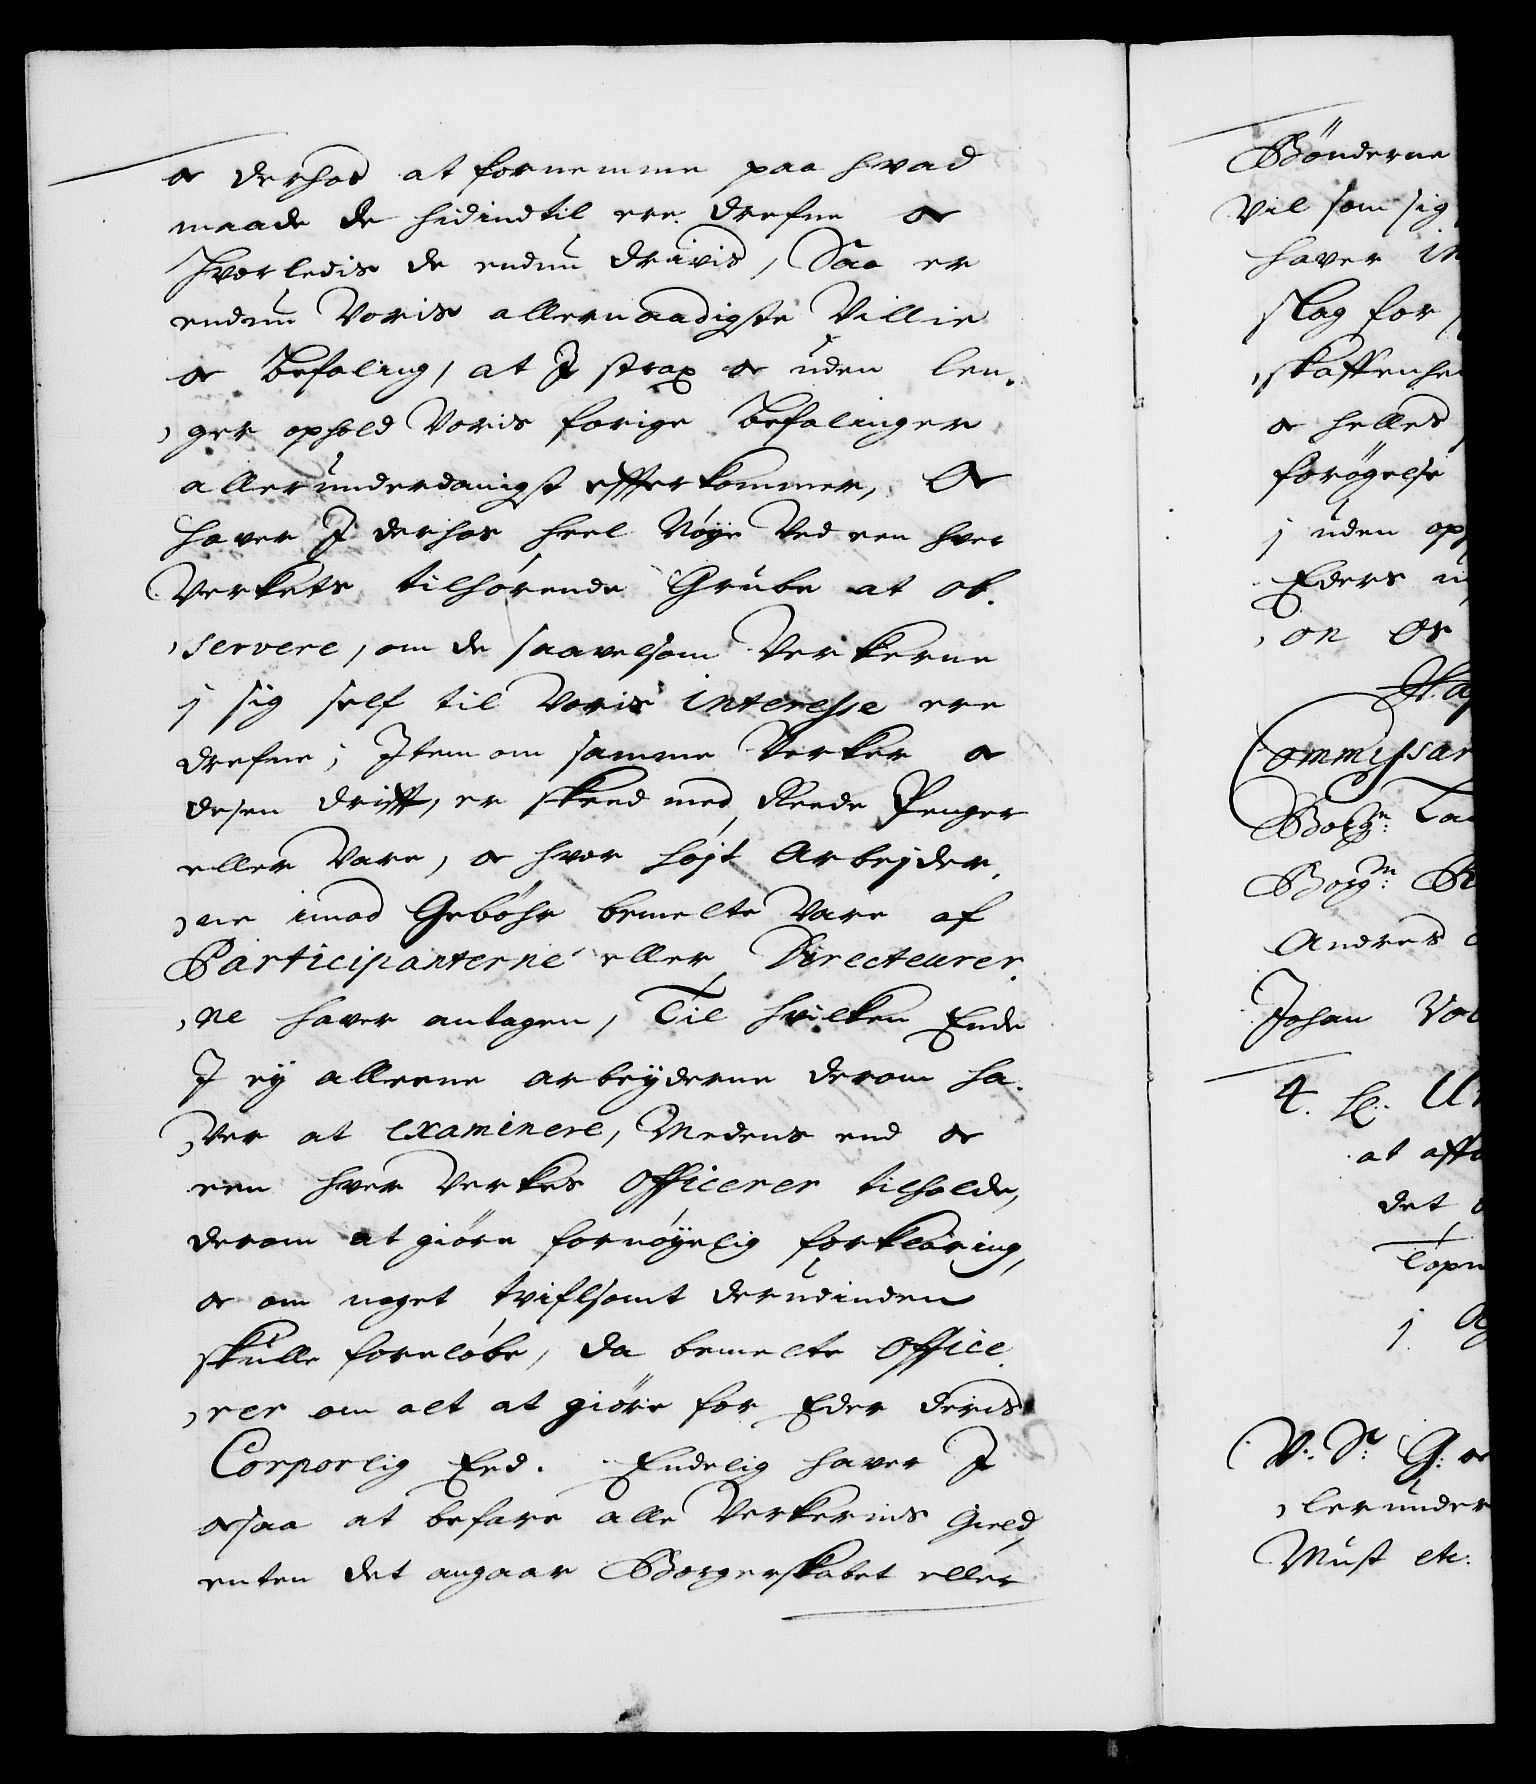 oc derhos at fornemme paa hvad
maade de hidindtil ere drefne oc
hvorledis de endnu drivis, Saa er
endnu Voris allernaadigste Villie
oc Befaling, at I strax oc uden len,
,ger ophold Voris forige Befalinger
allerunderdanigst efterkommer, Oc
haver I derhos heel Nøye Ved een hver
Verkets tilhørende Grube at ob,
,servere, om de saavelsom Verkerne
j sig self til Voris interesse ere
drefne; Item om samme Verker oc
desen drifft, er skeed med Reede Penger
eller Vare, oc hvor højt Arbejder,
,ne imod Gebøhr bemelte Vare af
Participanterne eller Directeurer,
,ne haver antagen, Til hvilken Ende
I ey alleene arbeyderne derom ha,
,ver at examinere, Medens end oc
een hver Verkes Officerer tilholde,
derom at giöre fornøyelig forklaring,
oc om noget tviflsomt derudinden
skulle foreløbe, da bemelte Office,
,rer om alt at giöre for Eder deris
Corporlig Eed. Endelig haver I
ocsaa at befare alle Verkernis Gield,
enten det angaar Borgerskabet eller
Bönderne
Vil som sig
haver in
slag for
,skaffenhe
oc helles
forøgelse
j uden op
Eders u
,on Oc
Commissar
Borg: La
Borgm: R
Andres
Johan Vol
4. Sc: Un
at affo
det
Topn
j
V. Sr: G: oc
,lerunder
Must etc.